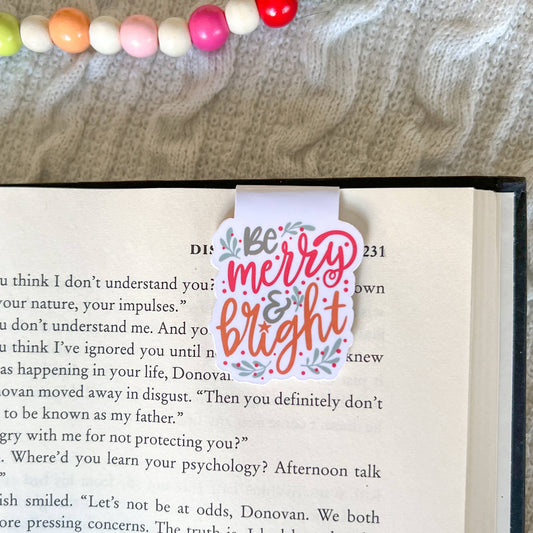 DIS 231
Be
merry
&
bright
u think I don't understand you? own
your nature, your impulses."
u don't understand me. And yo
u think I've ignored you until n knew
as happening in your life, Donovan
novan moved away in disgust. "Then you definitely don't
to be known as my father."
gry with me for not protecting you?"
. Where'd you learn your psychology? Afternoon talk
"
ish smiled. "Let's not be at odds, Donovan. We both
ore pressing concerns. The truth is, I